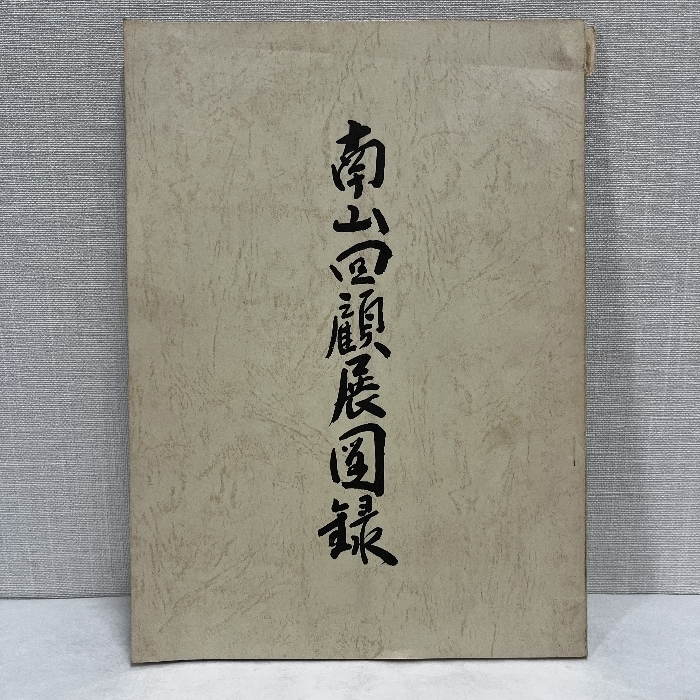 南山回顧展図録